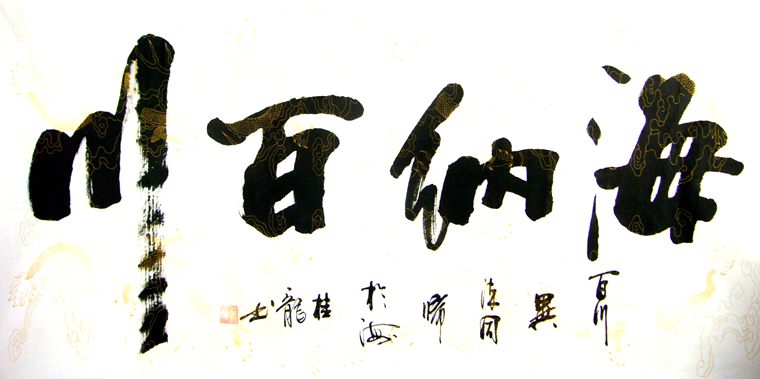 海納百川
百川異源同歸於海
桂龍书